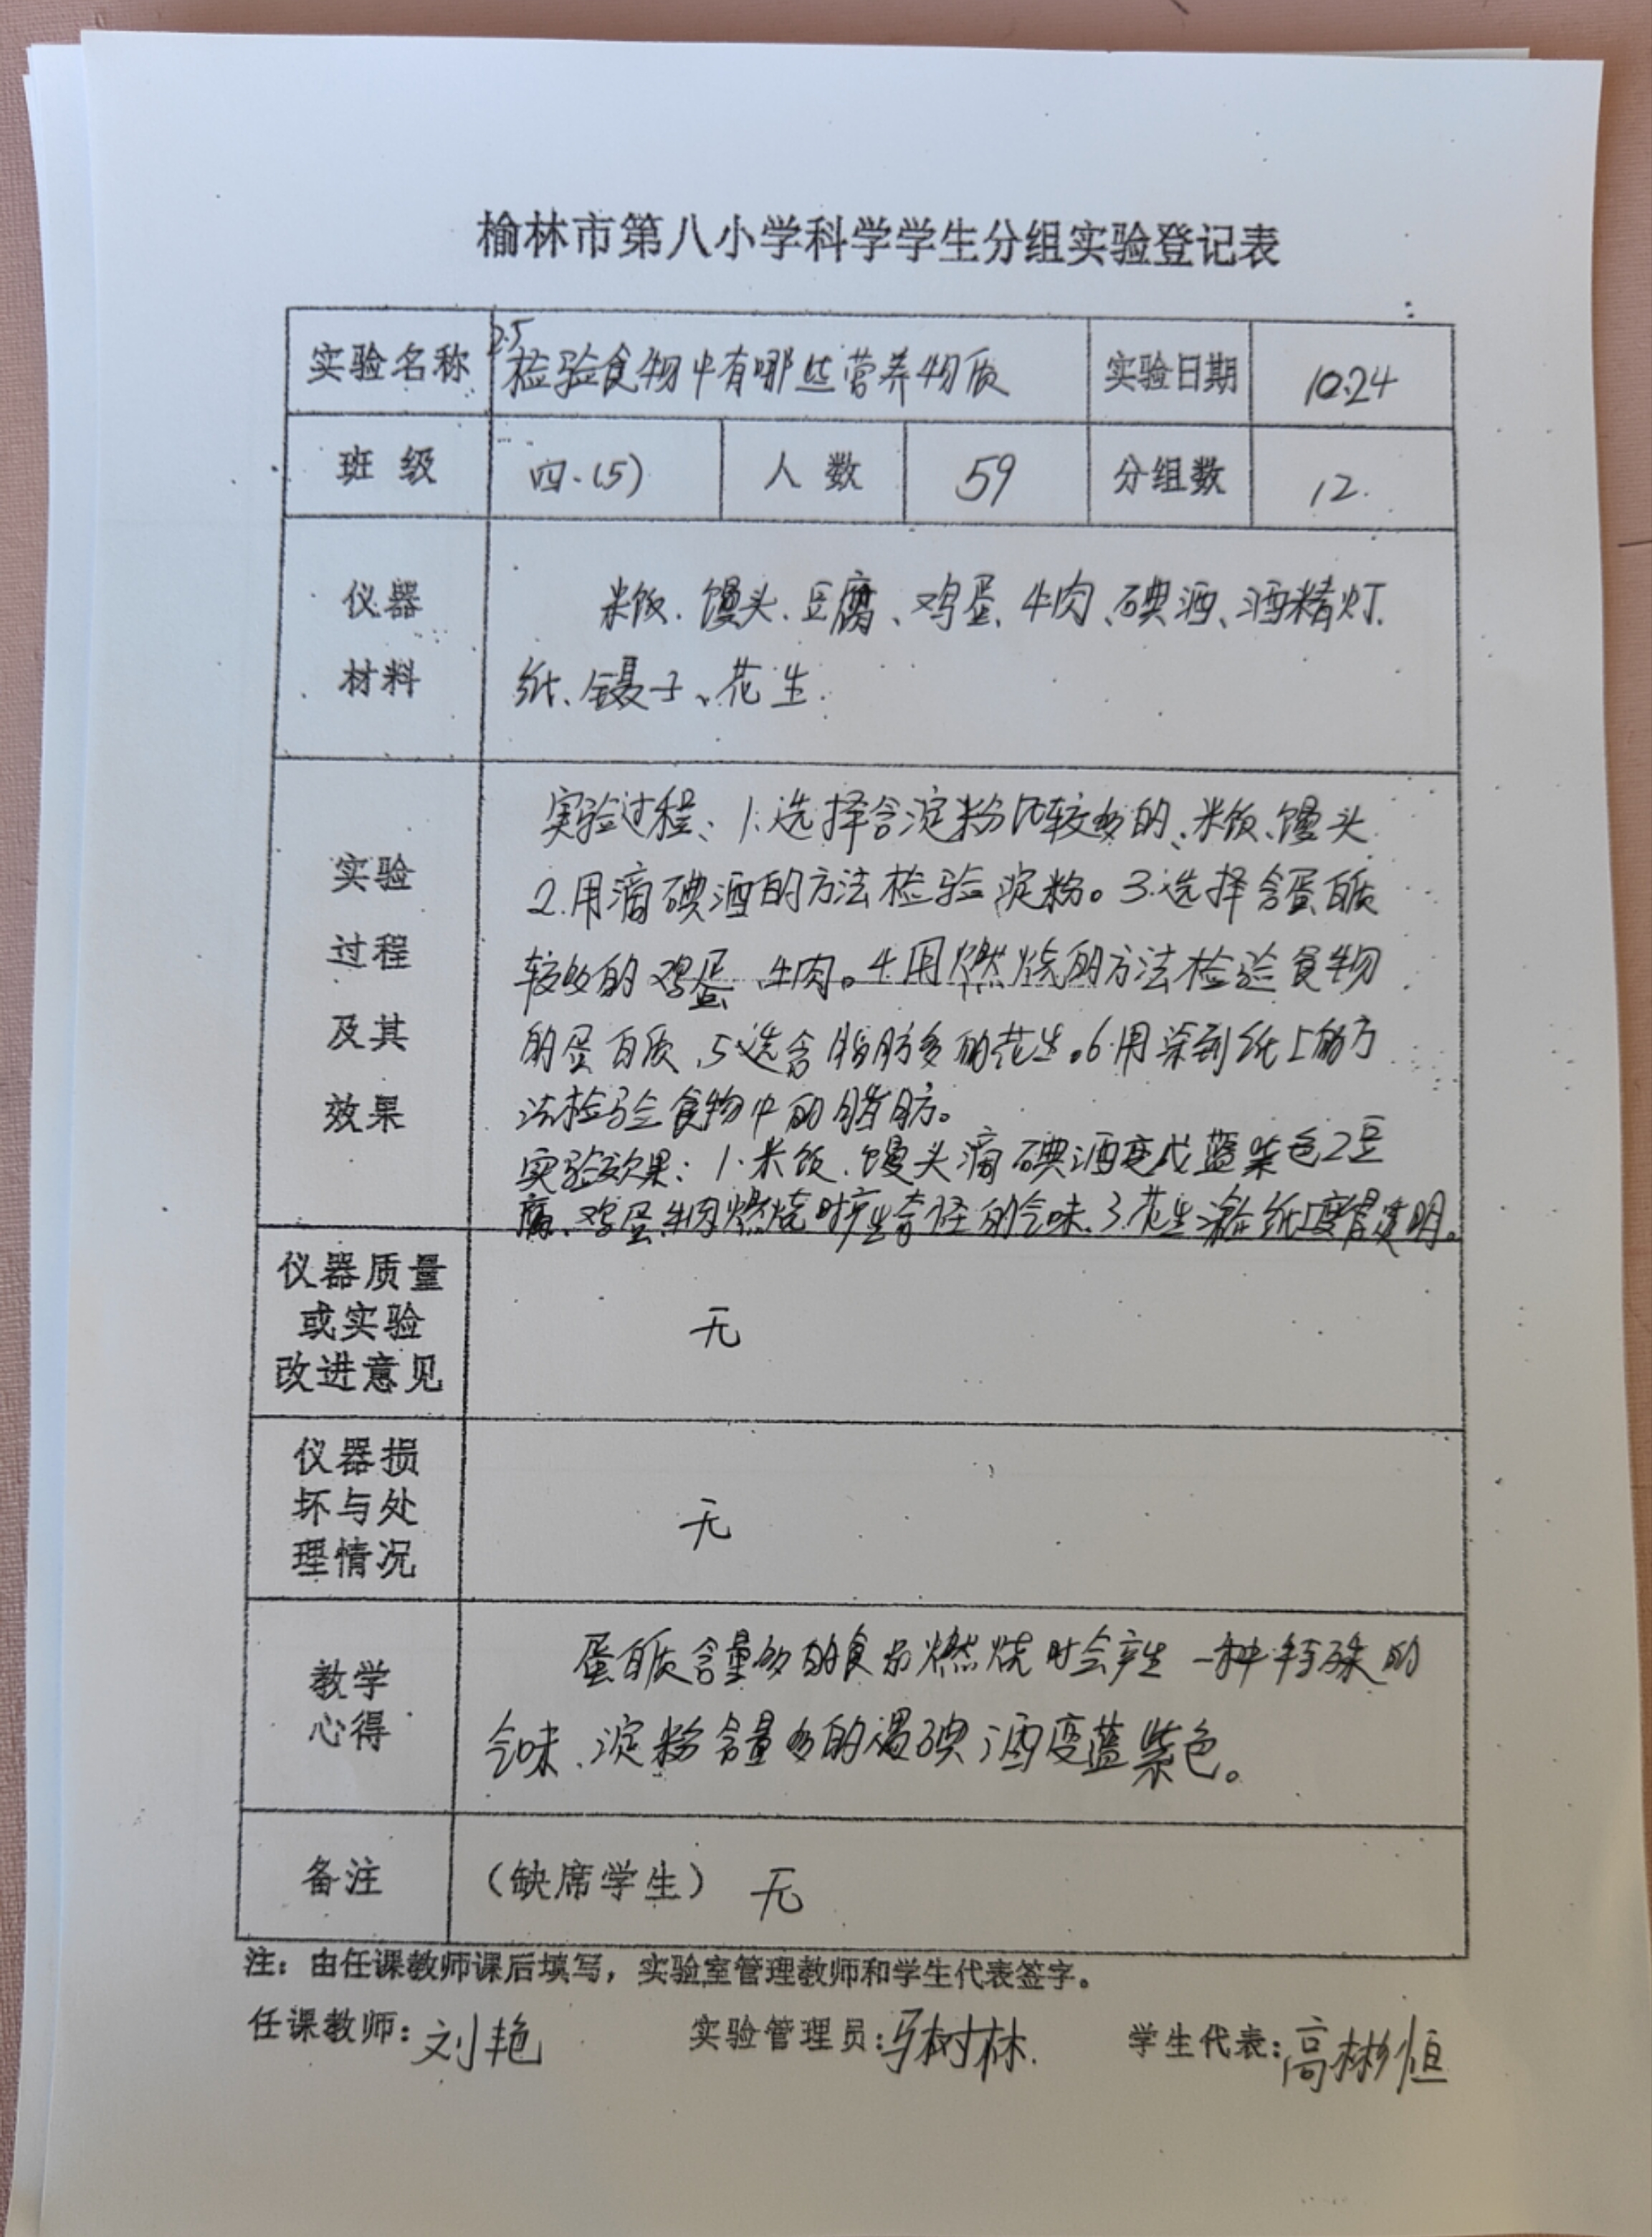 榆林市第八小学科学学生分组实验登记表
实验名称 2.5 检验食物中有哪些营养物质 实验日期 10.24
班级 四.(5) 人数 59 分组数 12.
仪器 米饭、馒头、豆腐、鸡蛋、牛肉、碘酒、酒精灯、
材料 纸、镊子、花生.
实验过程、1.选择含淀粉比较多的、米饭、馒头
实验 2.用滴碘酒的方法检验淀粉。3.选择含蛋白质
过程 较多的鸡蛋、牛肉。4.用燃烧的方法检验食物
及其 的蛋白质、5选含脂肪多的花生。6.用涂到纸上的方
效果 法检验食物中的脂肪。
实验效果:1.米饭、馒头滴碘酒变成蓝紫色2豆
腐、鸡蛋、牛肉燃烧时产生奇怪的气味、3.花生 在纸上变得透明。
仪器质量
或实验 无
改进意见
仪器损
坏与处 无
理情况
教学 蛋白质含量多的食品燃烧时会产生一种特殊的
心得 气味、淀粉含量多的遇碘酒变蓝紫色。
备注 (缺席学生) 无
注:由任课教师课后填写,实验室管理教师和学生代表签字。
任课教师:刘艳 实验管理员:马树林. 学生代表:高彬恒